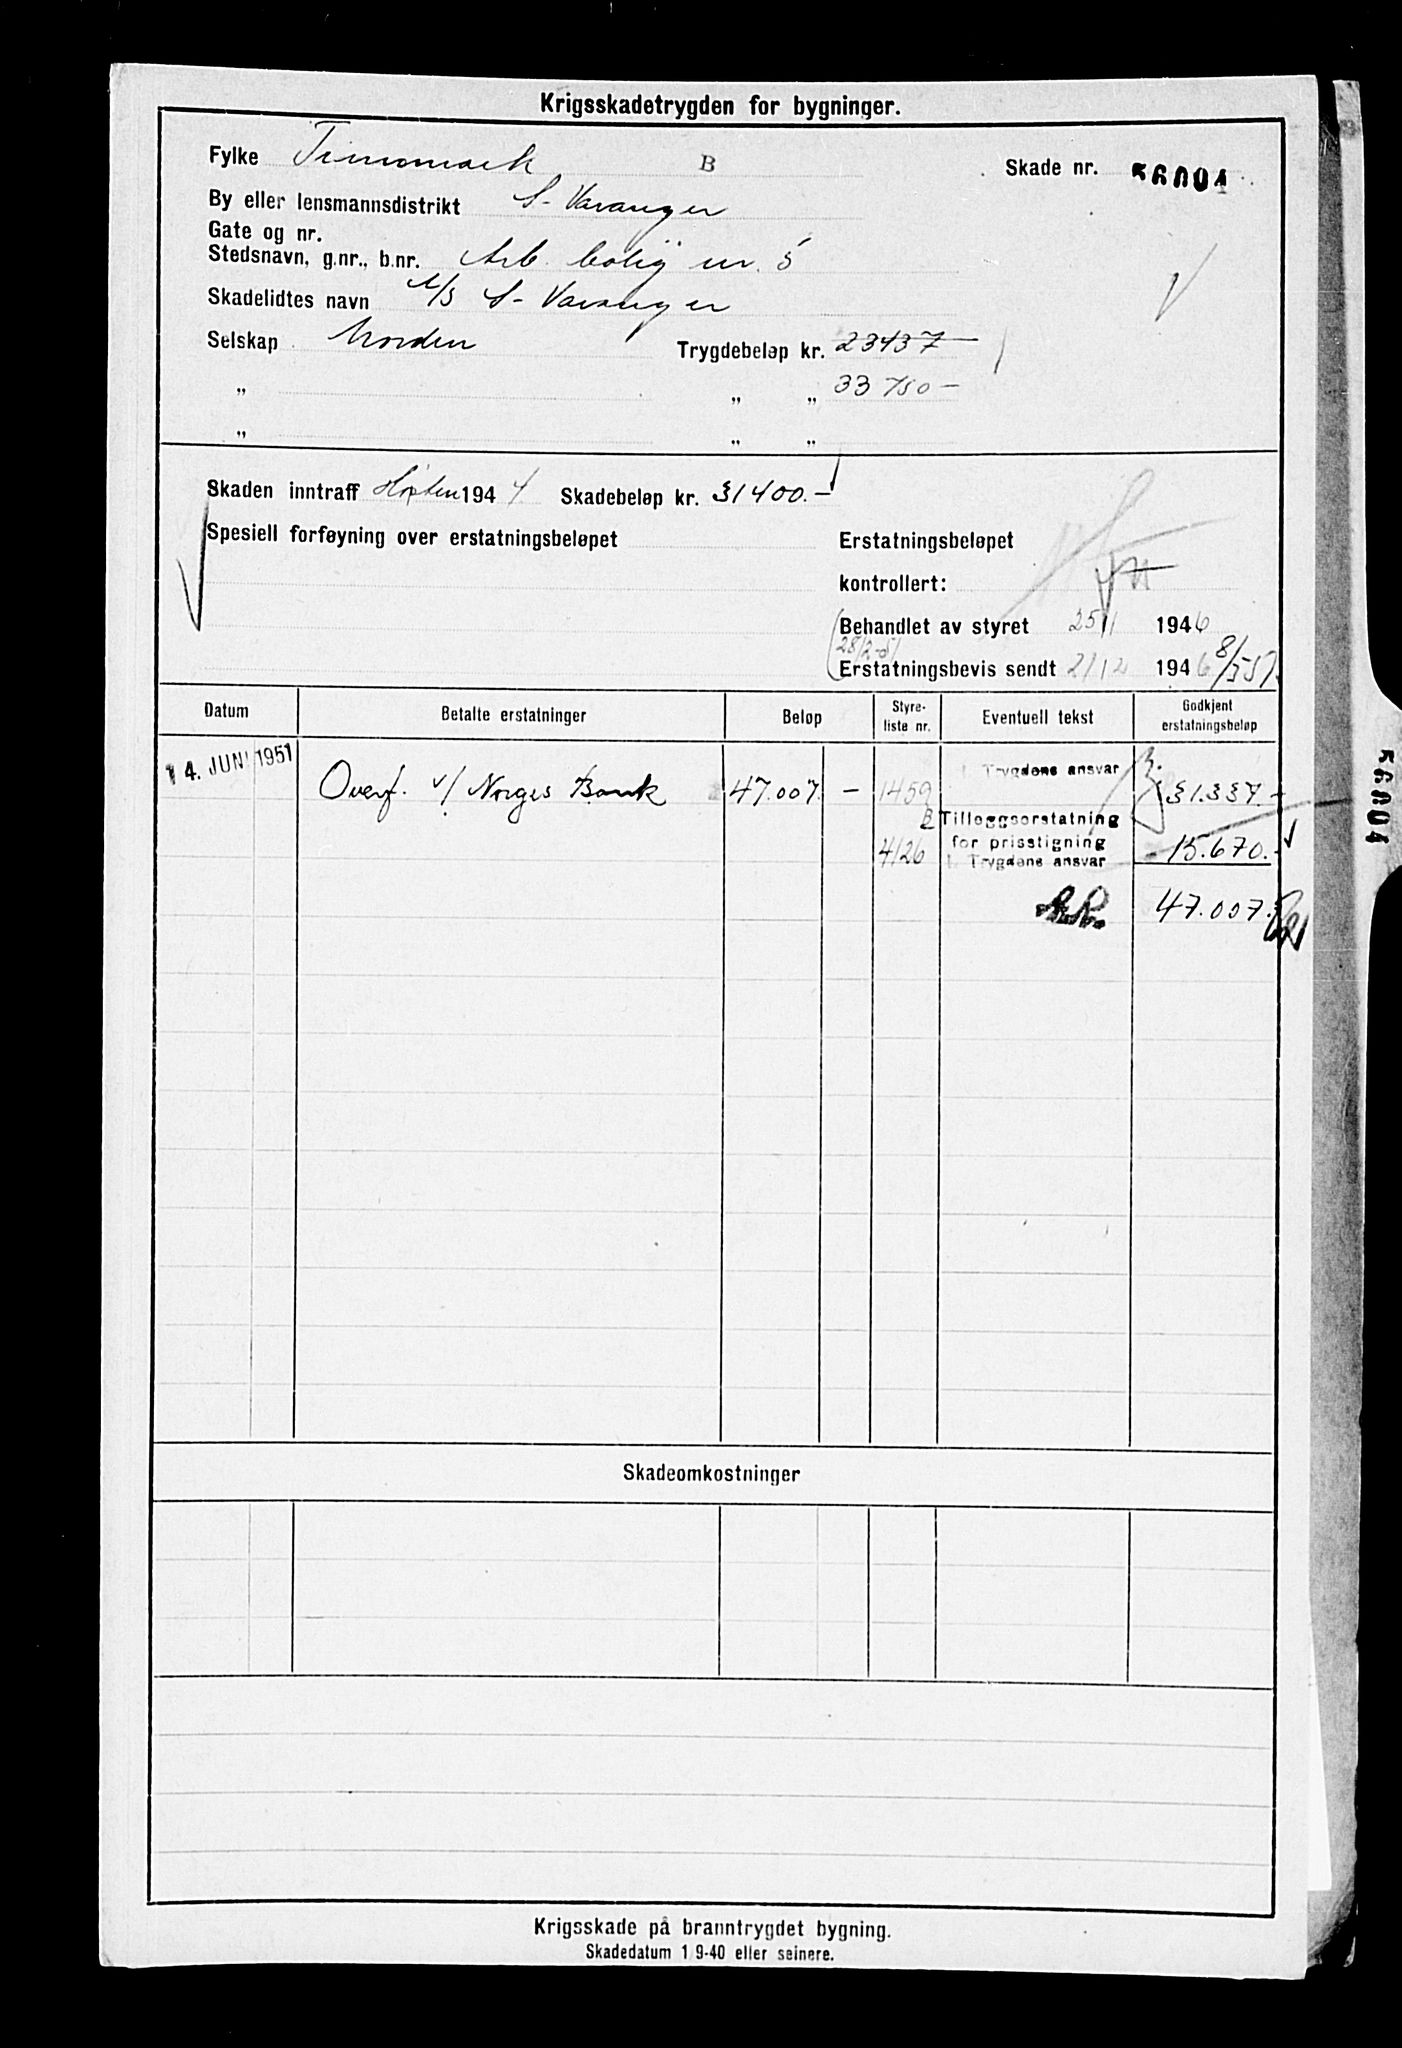 Krigsskadetrygden for bygninger.
Fylke Finnmark B Skade nr. 56004
By eller lensmannsdistrikt S-Varanger
Gate og nr.
Stedsnavn, g.nr., b.nr. Arb. bolig nr. 5
Skadelidtes navn A/S S-Varanger
Selskap Norden Trygdebeløp kr. 23437
„ „ „ 33 750 –
„ „ „
Skaden inntraff Høsten 1944 Skadebeløp kr. 31400.–
Spesiell forføyning over erstatningsbeløpet Erstatningsbeløpet
kontrollert:
Behandlet av styret 25/11 1946
28/2-51
Erstatningsbevis sendt 2/12 1946 8/3 51
Datum Betalte erstatninger Beløp Styre-liste nr. Eventuell tekst Godkjent erstatningsbeløp
14. JUNI 1951 Overf. v/ Norges Bank 47.007 – 1459 Trygdens ansvar 31.337.–
B Tilleggserstatning
4126 for prisstigning 15.670.–
Trygdens ansvar
47.007.
56004
Skadeomkostninger
Krigsskade på branntrygdet bygning.
Skadedatum 1 9-40 eller seinere.